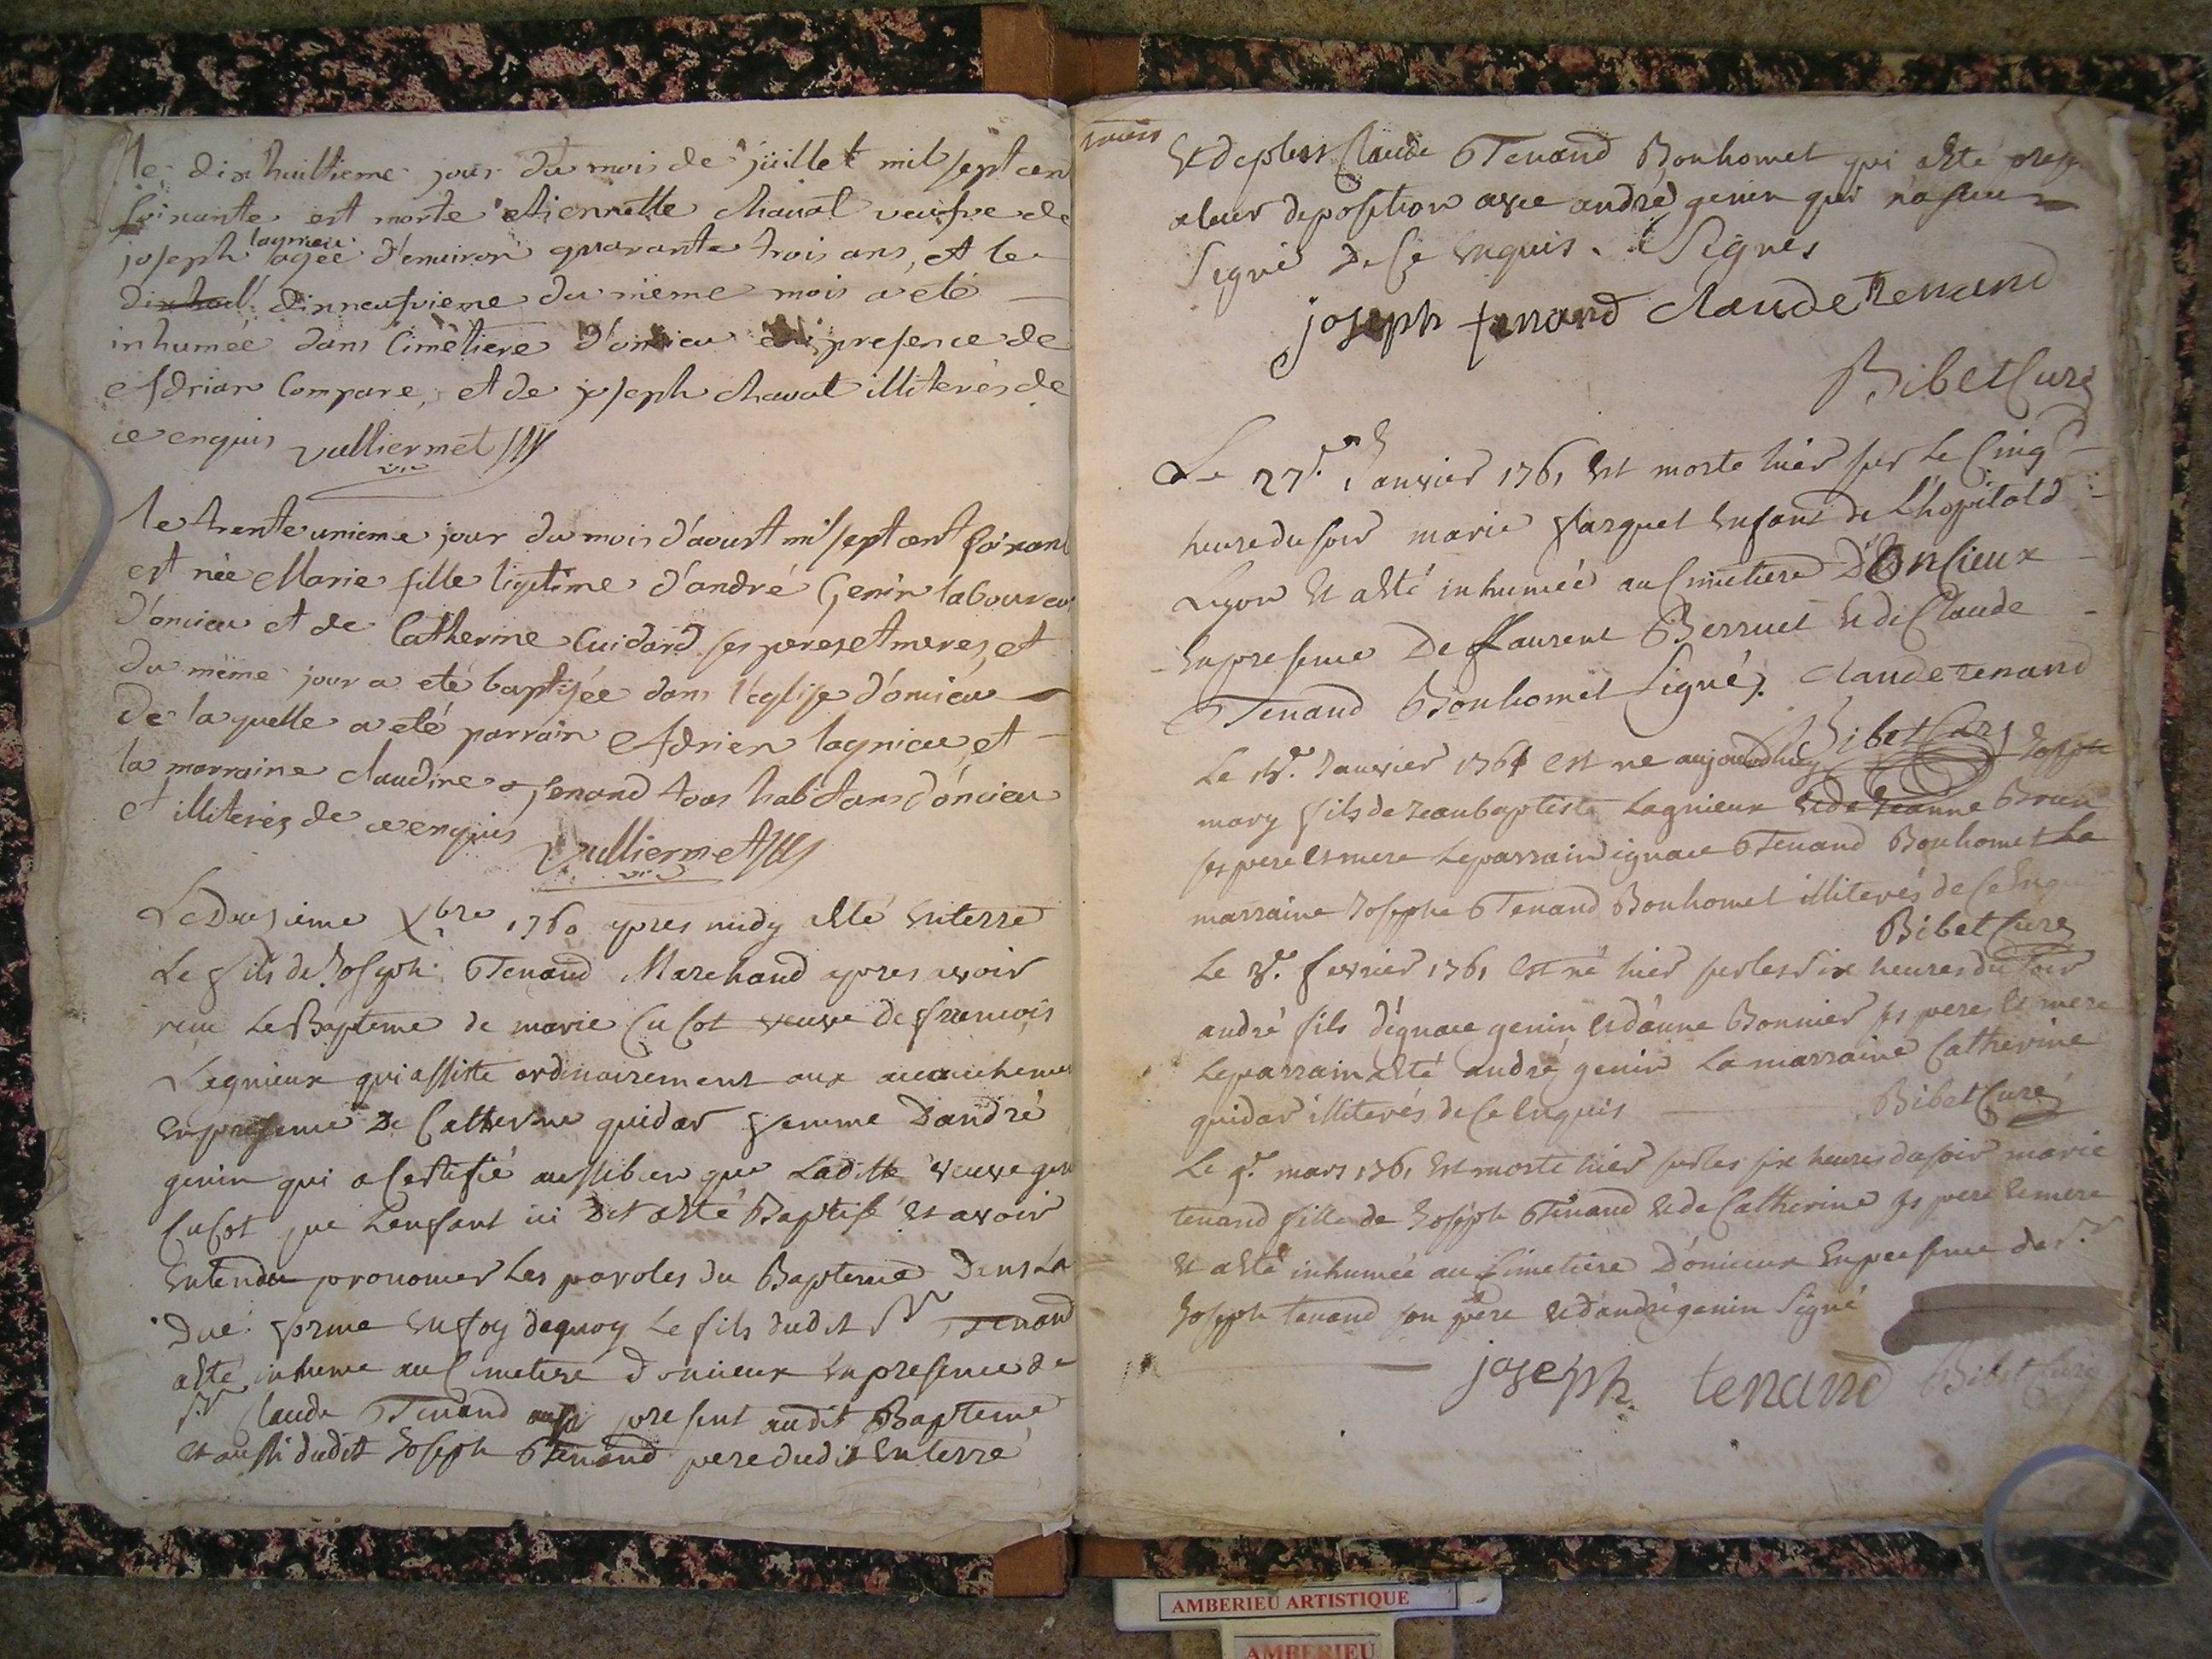 le dixhuittieme jour du mois de jüillet mil sept cen
soixante est morte etiennette chaval veufve de
joseph lagnieu agée d'environ quarante trois ans, et le
dixneufvieme du même mois a eté
inhumée dans cimêtiere d'oncieu en presence de
Adrian Compare, et de joseph chaval illiterés de
ce enquis vulliermet
le trente unieme jour du mois d'aoust mil sept cent soixan
est née Marie fille ligitime d'andré Genin laboureur
d'oncieu et de Catherine Cuidard ses peres et meres, et
du même jour a eté baptisée dans l'eglise d'oncieu
de laquelle a eté parrain Adrien lagnieu, et
la marraine claudine tenand tous habitans d'oncieu
et illiterés de ce enquis vulliermet
Le Dousieme Xbre 1760 apres midy a esté enterré
Le fils de Joseph Tenand Marchand apres avoir
recu Le Bapteme de marie Cucot veuve de francois
Legnieux qui assiste ordinairement aux accouchemen
en presence De Catherine guidar femme D'andré
genin qui a Certifié aussi bien que Laditte veuve
Cucot que L'enfant ici Dit a esté Baptisé et avoir
entendu prononcer Les paroles du Bapteme Dans La
Due forme en foy dequoy Le fils dudit Sr Tenand
a esté inhumé au Cimetiere d'oncieux en presence de
Sr Claude Tenand aussi present audit Bapteme
et aussi dudit Joseph Tenand pere dudit enterré
et de plus Claude Tenand Bonhomet qui a esté
a leur deposition avec andré genin qui n'a sceu
signé De Ce enquis. Signés
joseph tenand claude tenand
Bibet Curé
Le 27e. Janvier 1761 est morte hier sur Le Cinq
heure du soir marie enfant de L'hopital d
Lyon et a esté inhumée au Cimetiere D'Oncieux
en presence De Laurent Berruet et de Claude
Tenand Bonhomet Signés. claude tenand
Bibet Curé
Le Janvier 1761 est ne aujourdhuy Joseph
mary fils de Jean baptiste Lagnieux et de Jeanne
ses pere et mere Le parrain ignace Tenand Bonhomet La
marraine Josephe Tenand Bonhomet illiterés de Ce
Bibet Curé
Le fevrier 1761 est né hier sur les six heures du soir
andré fils d'ignace genin et d'anne Bonnier ses pere et mere
Le parrain a esté andré genin La marraine Catherine
guidar illiterés de Ce enquis Bibet Curé
Le mars 1761 est morte hier sur les six heures du soir marie
tenand fille de Joseph Tenand et de Catherine ses pere et mere
et a esté inhumée au Cimetiere D'oncieux en presence de Sr
Joseph tenand son pere et d'andré genin Signé
joseph tenand Bibet Curé
AMBERIEU ARTISTIQUE
AMBERIEU